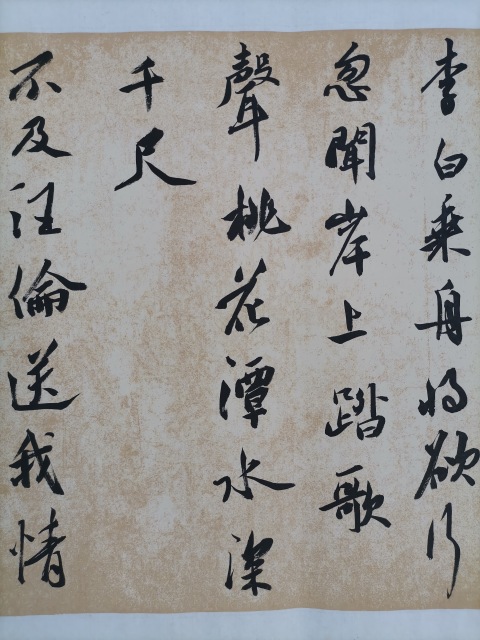 李白乘舟将欲行
忽聞岸上踏歌
聲桃花潭水深
千尺
不及汪倫送我情